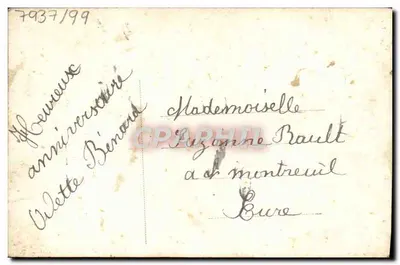 7937/99
Heureux
anniversaire
Odette Bénard
Mademoiselle
Suzanne Rault
a montreuil
Eure
CPAPHIL